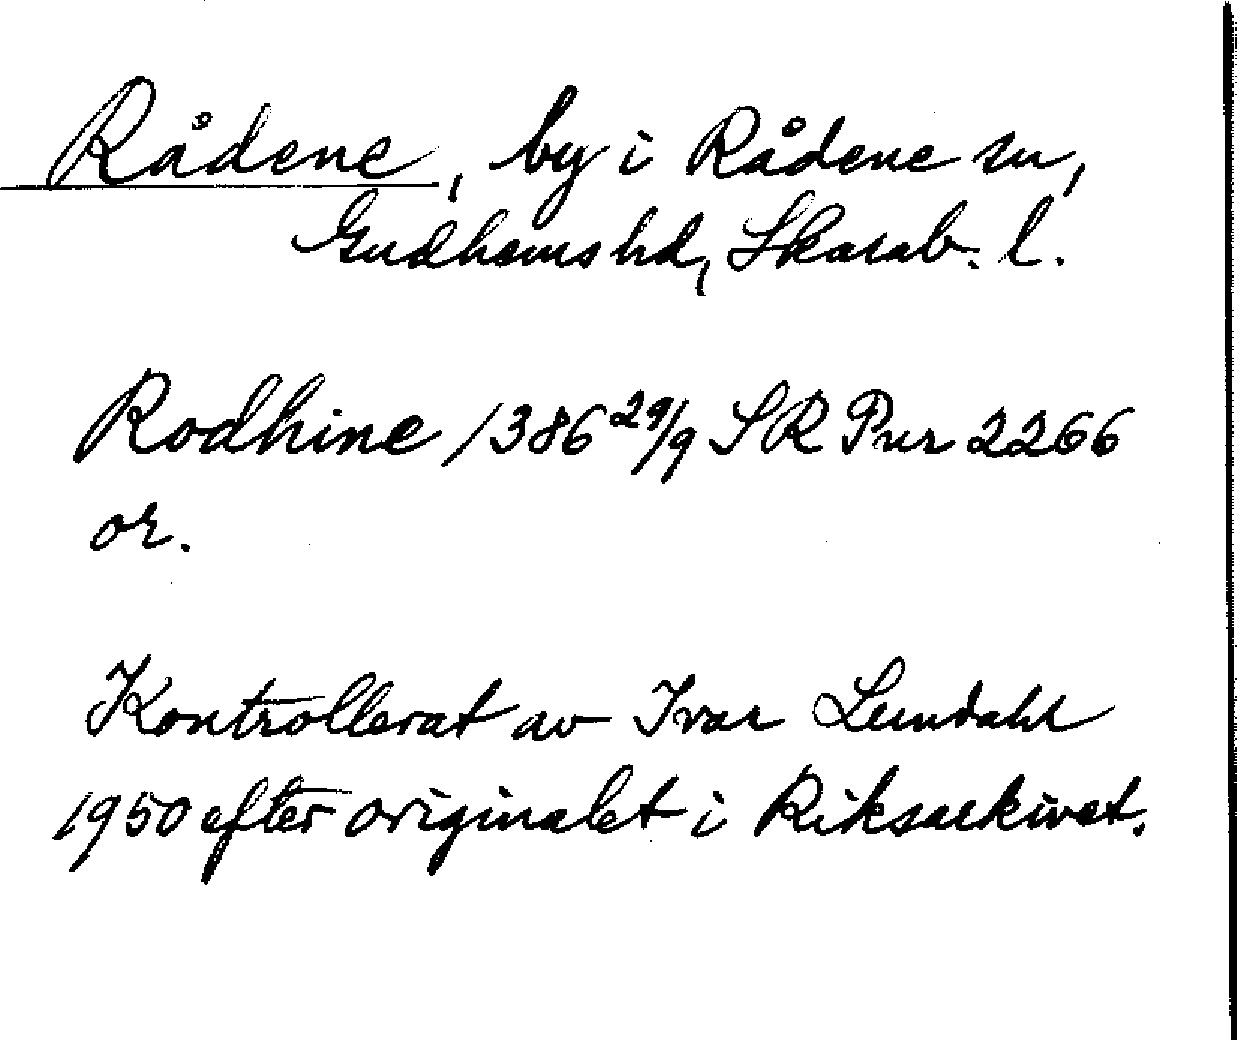 Rådene, by i Rådene sn,
Gudhems hd, Skarab. l.
Rodhine 1386 29/9 SR Pur 2266
or.
Kontrollerat av Ivar Lundahl
1950 efter originalet i Riksarkivet.